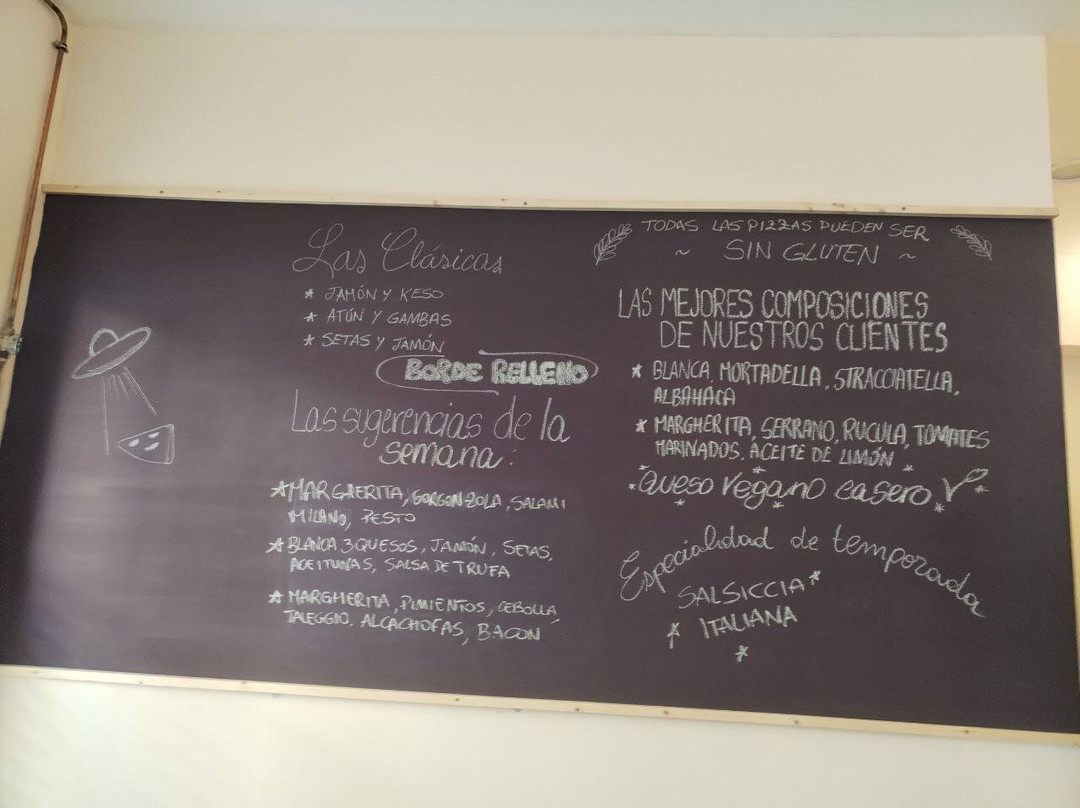 Las Clásicas
* JAMÓN Y KESO
* ATÚN Y GAMBAS
* SETAS Y JAMÓN
BORDE RELLENO
Las sugerencias de la
semana:
* MARGHERITA, GORGONZOLA, SALAMI
MILANO, PESTO
* BLANCA 3 QUESOS, JAMÓN, SETAS,
ACEITUNAS, SALSA DE TRUFA
* MARGHERITA, PIMIENTOS, CEBOLLA,
TALEGGIO, ALCACHOFAS, BACON
TODAS LAS PIZZAS PUEDEN SER
~ SIN GLUTEN ~
LAS MEJORES COMPOSICIONES
DE NUESTROS CLIENTES
* BLANCA, MORTADELLA, STRACCIATELLA,
ALBAHACA
* MARGHERITA, SERRANO, RUCULA, TOMATES
MARINADOS, ACEITE DE LIMÓN
Queso vegano casero V
Especialidad de temporada
SALSICCIA
ITALIANA